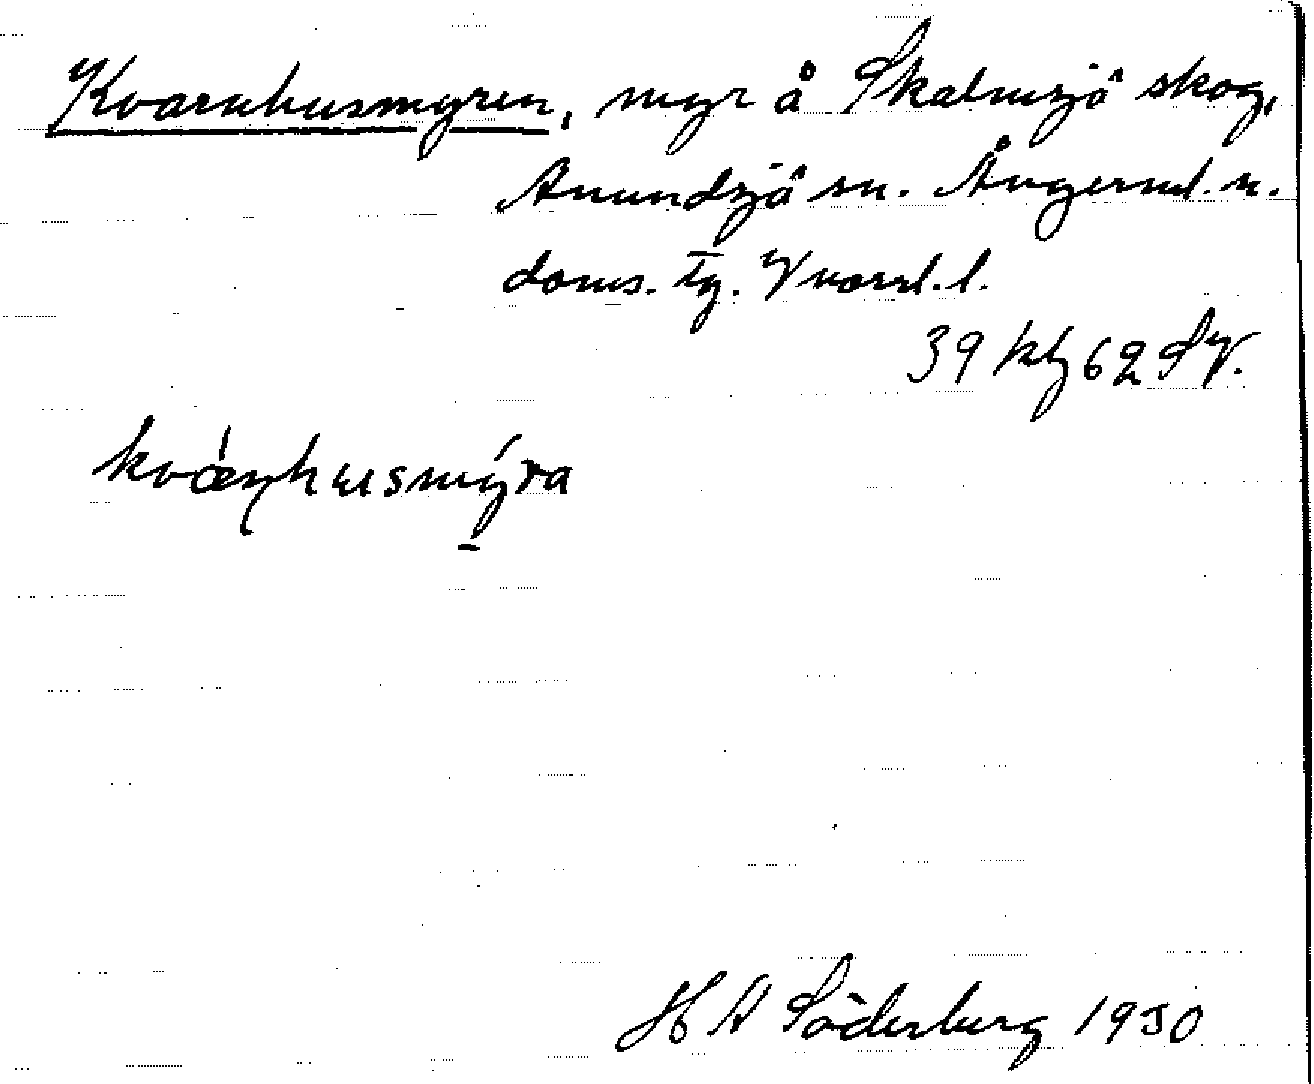 Kvarnhusmyren, myr å Skalmsjö skog,
Anundsjö sn. Ångerml. n.
doms. tg. V norrl. l.
39 kbl 62 SV.
kvǽṇhusmýra
H A Söderberg 1950